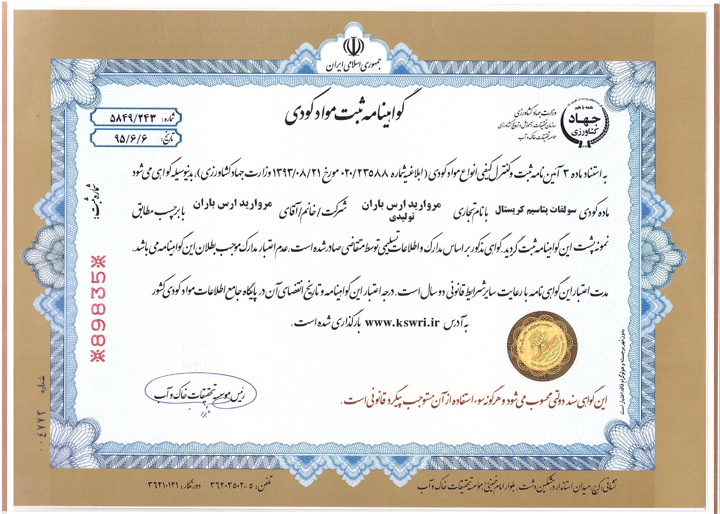 جمهوری اسلامی ایران
گواهینامه ثبت مواد کودی
شماره: ۵۸۴۹/۲۴۳
تاریخ: ۹۵/۶/۶
همه با هم
جهاد
کشاورزی
وزارت جهاد کشاورزی
سازمان تحقیقات، آموزش و ترویج کشاورزی
موسسه تحقیقات خاک و آب
به استناد ماده ۳ آئین نامه ثبت و کنترل کیفی انواع مواد کودی (ابلاغیه شماره ۰۲۰/۲۳۵۸۸ مورخ ۱۳۹۳/۰۸/۲۱ وزارت جهاد کشاورزی)، بدینوسیله گواهی می شود
ماده کودی سولفات پتاسیم کریستال با نام تجاری مروارید ارس باران تولیدی شرکت/خانم/آقای مروارید ارس باران با برچسب مطابق
نمونه پشت این گواهینامه ثبت گردید. گواهی مذکور بر اساس مدارک و اطلاعات تسلیمی توسط متقاضی صادر شده است، عدم اعتبار مدارک موجب بطلان این گواهینامه می باشد.
مدت اعتبار این گواهی نامه با رعایت سایر شرایط قانونی دو سال است. درجه اعتبار این گواهینامه و تاریخ انقضای آن در پایگاه جامع اطلاعات مواد کودی کشور
به آدرس www.kswri.ir بارگذاری شده است.
شماره ثبت:
※89835※
رئیس موسسه تحقیقات خاک و آب
این گواهی سند دولتی محسوب می شود و هرگونه سوء استفاده از آن مستوجب پیگرد قانونی است.
بدون مهر برجسته و هولوگرام فاقد اعتبار است
شماره ۰۰۴۷۷۲
نشانی: کرج، میدان استاندارد، مشکین دشت، بلوار امام خمینی، موسسه تحقیقات خاک و آب تلفن: ۵-۳۶۲۰۳۵۰۲ دورنگار: ۳۶۲۱۰۱۲۱